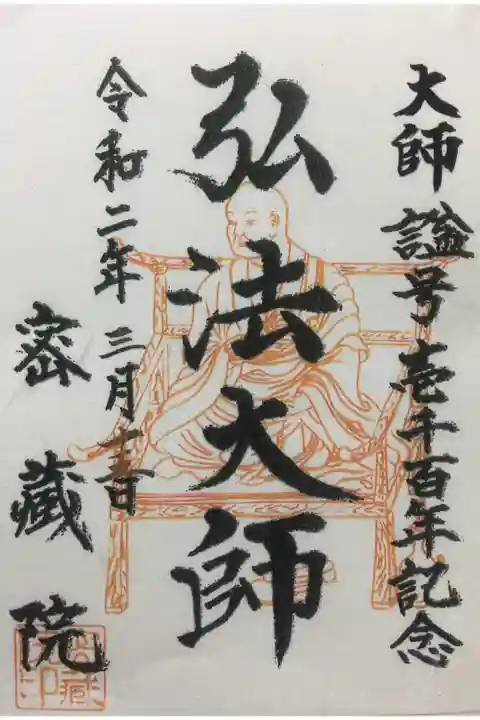 大師諡号壱千百年記念
弘法大師
令和二年三月 日
密藏院